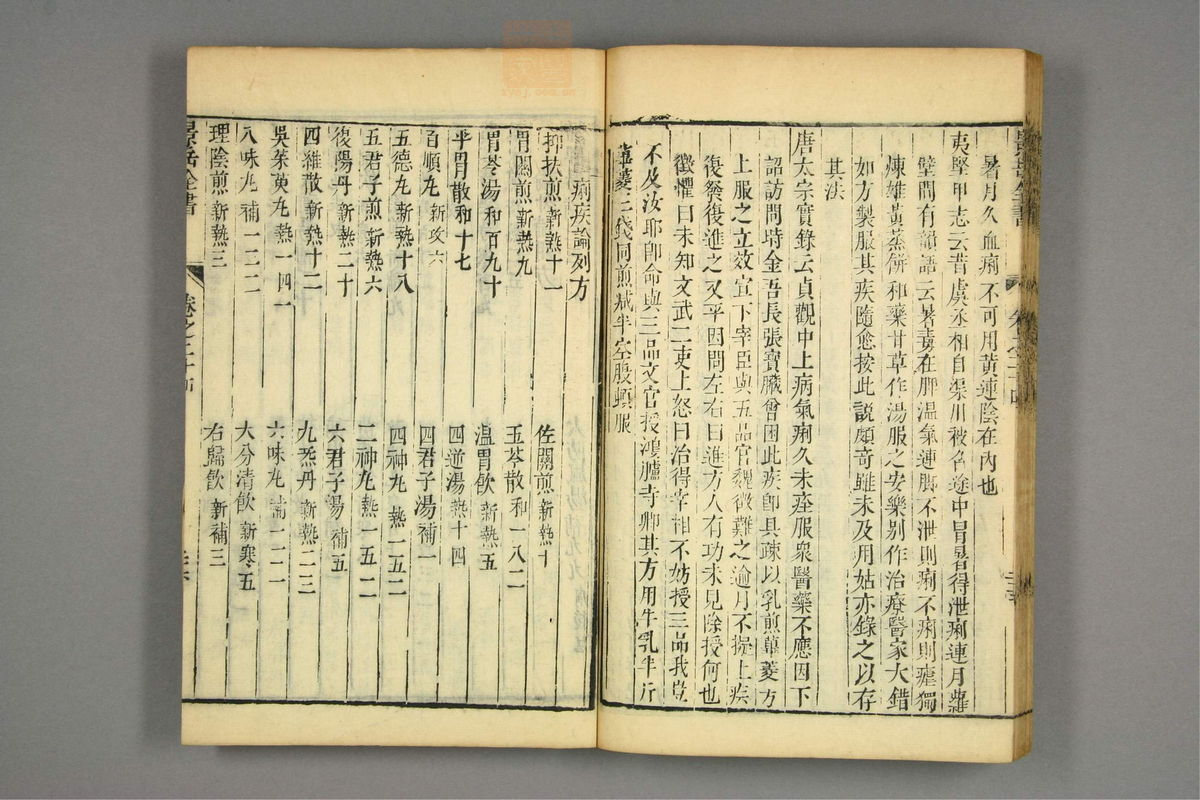 暑月久血痢不可用黃連陰在內也
夷堅甲志云昔虞丞相自渠川被名途中冒暑得泄痢連月蘿
壁間有韻語云暑毒在脾濕氣連脚不泄則痢不痢則瘧獨
煉雄黃蒸餅和藥甘草作湯服之安樂别作治療醫家大錯
如方製服其疾隨愈按此說頗奇雖未及用姑亦錄之以存
其法
唐太宗實錄云貞觀中上病氣痢久未痊服衆醫藥不應因下
詔訪問時金吾長張寶臟曾困此疾卽具疎以乳煎蓽菱方
上服之立效宣下宰臣與五品官魏徵難之逾月不擬上疾
復發復進之又平因問左右曰進方人有功未見除授何也
徵懼曰未知文武二吏上怒曰治得宰相不妨授三品我豈
不及汝耶卽命與三品文官授鴻臚寺卿其方用牛乳半斤
蓽菱三錢同煎減半空腹頓服
痢疾論列方
抑扶煎 新熱十一
佐關煎 新熱十
胃關煎 新熱九
五苓散 和一八二
胃苓湯 和百九十
溫胃飲 新熱五
平胃散 和十七
四逆湯 熱十四
百順丸 新攻六
四君子湯 補一
五德丸 新熱十八
四神丸 熱一五二
五君子煎 新熱六
二神丸 熱一五一
復陽丹 新熱二十
六君子湯 補五
四維散 新熱十二
九炁丹 新熱二三
吳茱萸丸 熱一四一
六味丸 補一二一
八味丸 補一二二
大分清飲 新寒五
理陰煎 新熱三
右歸飲 新補三
景岳全書
卷之二十四